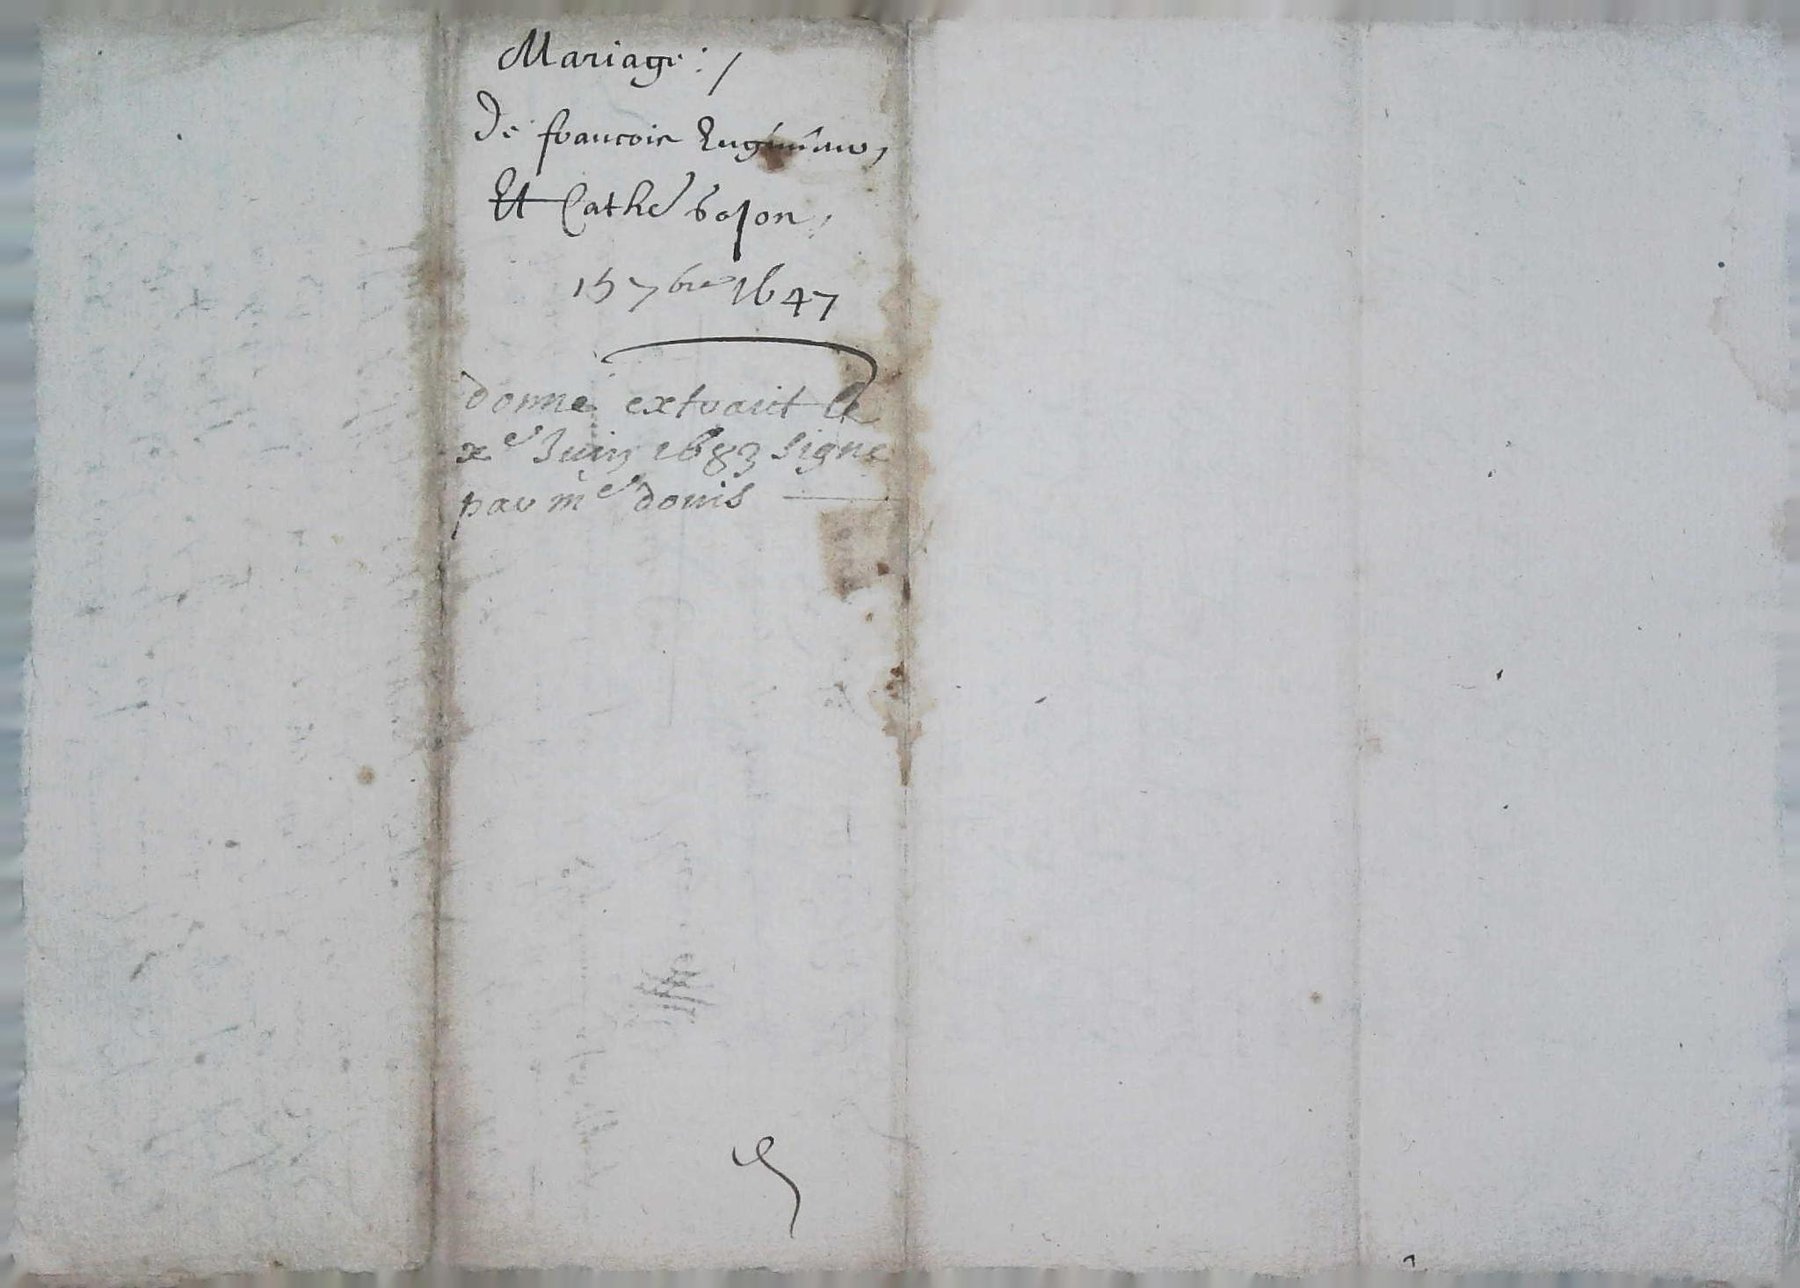 Mariage : /
De francois
Et Cathe bojon,
15 7bre 1647
donne extrait le
xe Juin 1683 signe
par me douis